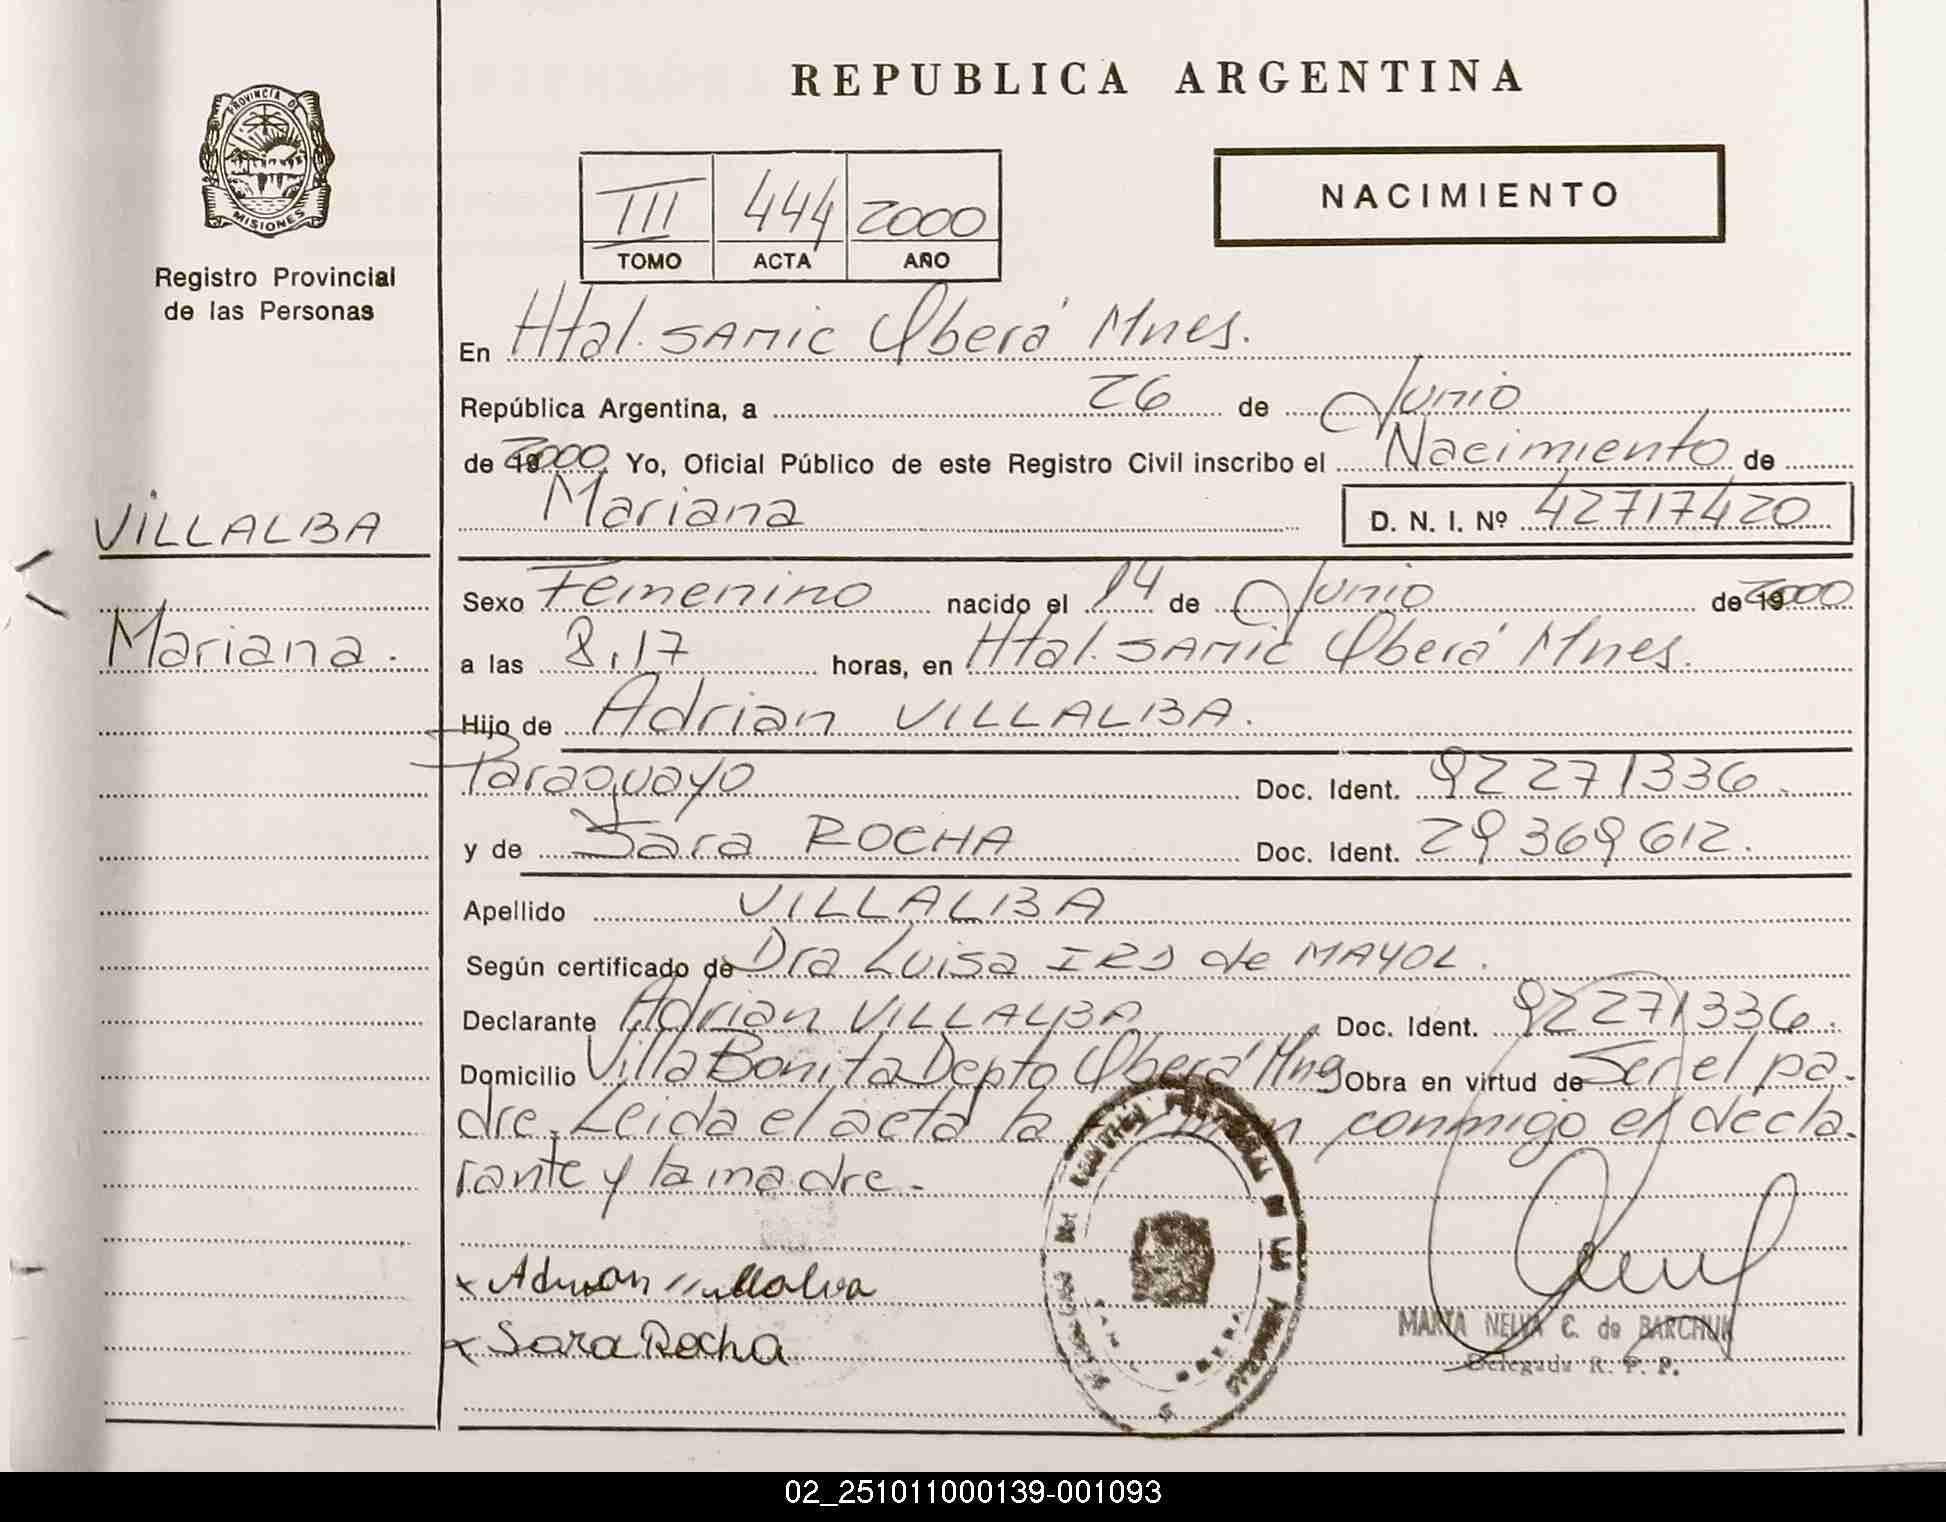 REPUBLICA ARGENTINA
PROVINCIA D
MISIONES
Registro Provincial
de las Personas
NACIMIENTO
III 444 2000
TOMO ACTA AÑO
En Htal. SAMIC Oberá Mnes.
República Argentina, a 26 de Junio
de 192000 Yo, Oficial Público de este Registro Civil inscribo el Nacimiento de
Mariana D. N. I. Nº 42717420
VILLALBA
Mariana.
Sexo Femenino nacido el 14 de Junio de 192000
a las 8,17 horas, en Htal. SAMIC Oberá Mnes.
Hijo de Adrian VILLALBA.
Paraguayo Doc. Ident. 92271336.
y de Sara ROCHA Doc. Ident. 29369612.
Apellido VILLALBA
Según certificado de Dra Luisa de MAYOL.
Declarante Adrian VILLALBA Doc. Ident. 92271336.
Domicilio Villa Bonita Depto Oberá Mns Obra en virtud de Ser el pa-
dre. Leida el acta la firman conmigo el decla-
rante y la madre.-
x Adrian Villalva
x Sara Rocha
MARTA NELVA C. de BARCHUK
Delegada R. P. P.
02_251011000139-001093